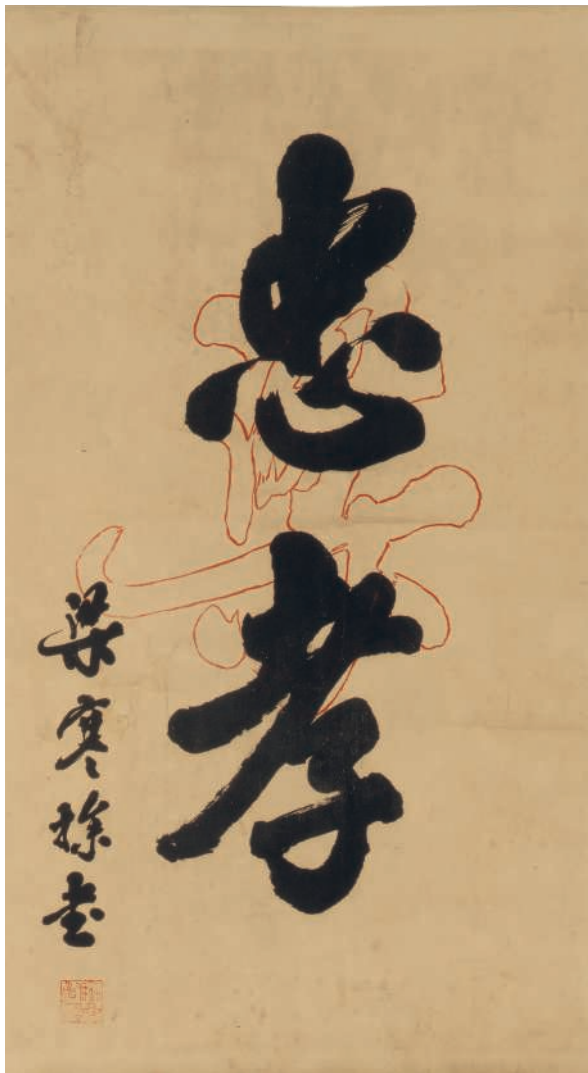 忠孝
梁寒操書